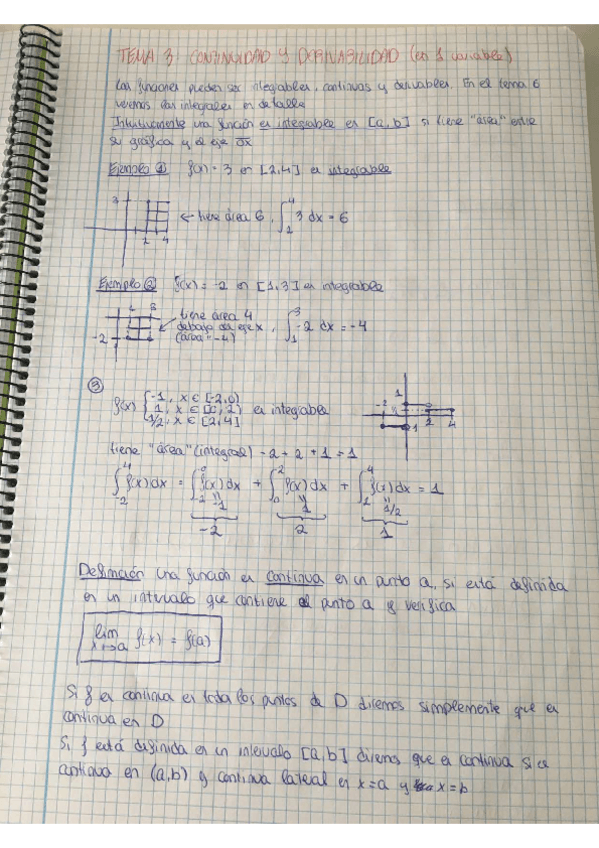 TEMA 3: CONTINUIDAD Y DERIVABILIDAD (en 1 variable)
Las funciones pueden ser integrables, continuas y derivables. En el tema 6
veremos las integrales en detalle
Intuitivamente una función es integrable en [a,b] si tiene "área" entre
su gráfica y el eje OX
Ejemplo ① f(x) = 3 en [2,4] es integrable
3
2 4
← tiene área 6, ∫₂⁴ 3 dx = 6
Ejemplo ② f(x) = -2 en [1,3] es integrable
1 3
-2
tiene area 4
debajo del eje x
(área = -4)
, ∫₁³ -2 dx = -4
③
f(x) { -1, x ∈ [-2,0)
1, x ∈ [0,2)
1/2, x ∈ [2,4]
es integrable
1
-2
-1 2 4
tiene "área" (integral) -2 + 2 + 1 = 1
∫₋₂⁴ f(x)dx = ∫₋₂⁰ f(x)dx + ∫₀² f(x)dx + ∫₂⁴ f(x)dx = 1
-1 1 1/2
-2 2 1
Definición una función es continua en un punto a, si está definida
en un intervalo que contiene al punto a y verifica
lim x→a f(x) = f(a)
Si f es continua en todos los puntos de D diremos simplemente que es
continua en D
Si f está definida en un intervalo [a,b] diremos que es continua si es
continua en (a,b) y continua lateral en x=a y x=b